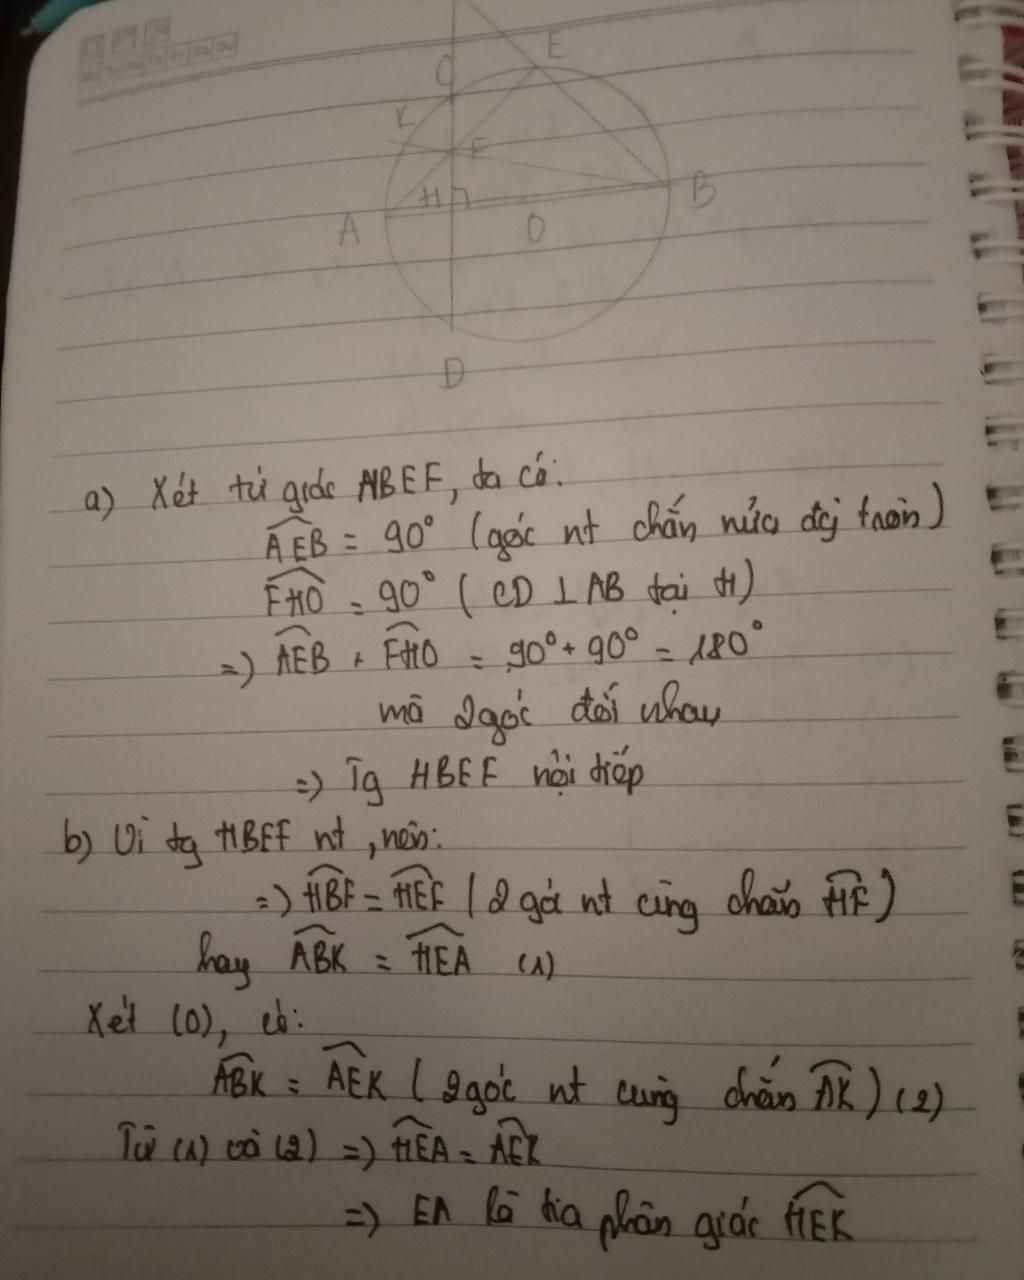 Mo Tu We Th Fr Sa Su
E
C
K
F
H
B
A
O
D
a) Xét tứ giác HBEF, ta có:
AEB = 90° (góc nt chắn nửa đg tròn)
FHO = 90° ( CD ⊥ AB tại H)
=) AEB + FHO = 90° + 90° = 180°
mà 2 góc đối nhau
=) Tg HBEF nội tiếp
b) Vì tg HBEF nt , nên:
=) HBF = HEF ( 2 góc nt cùng chắn HF )
hay ABK = HEA (1)
Xét (O), có:
ABK = AEK ( 2 góc nt cùng chắn AK ) (2)
Từ (1) và (2) =) HEA = AEK
=) EA là tia phân giác HEK